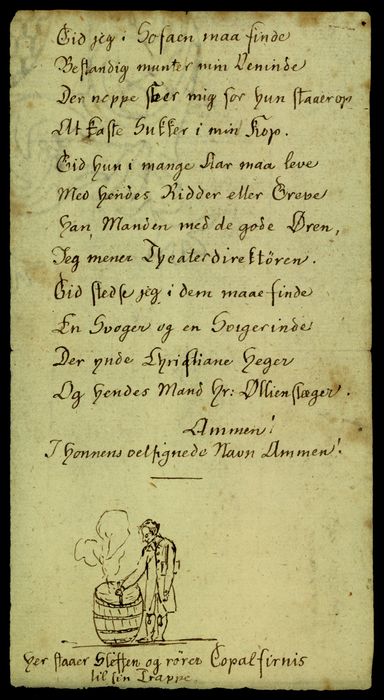 Gid jeg i Sofaen maa finde
Bestandig munter min Veninde
Der neppe seer mig før hun staaer op
At kaste Sukker i min Kop.
Gid hun i mange Aar maa leve
Med hendes Ridder eller Greve
Han, Manden med de gode Øren,
Jeg mener Theaterdirektören.
Gid stedse jeg i dem maae finde
En Svoger og en Svigerinde
Der ynde Christiane Heger
Og hendes Mand Hr: Øllienslæger.
Ammen!
I Honnens velsignede Navn Ammen!
Her staaer Steffen og rører Copalfirnis
til sin Trappe